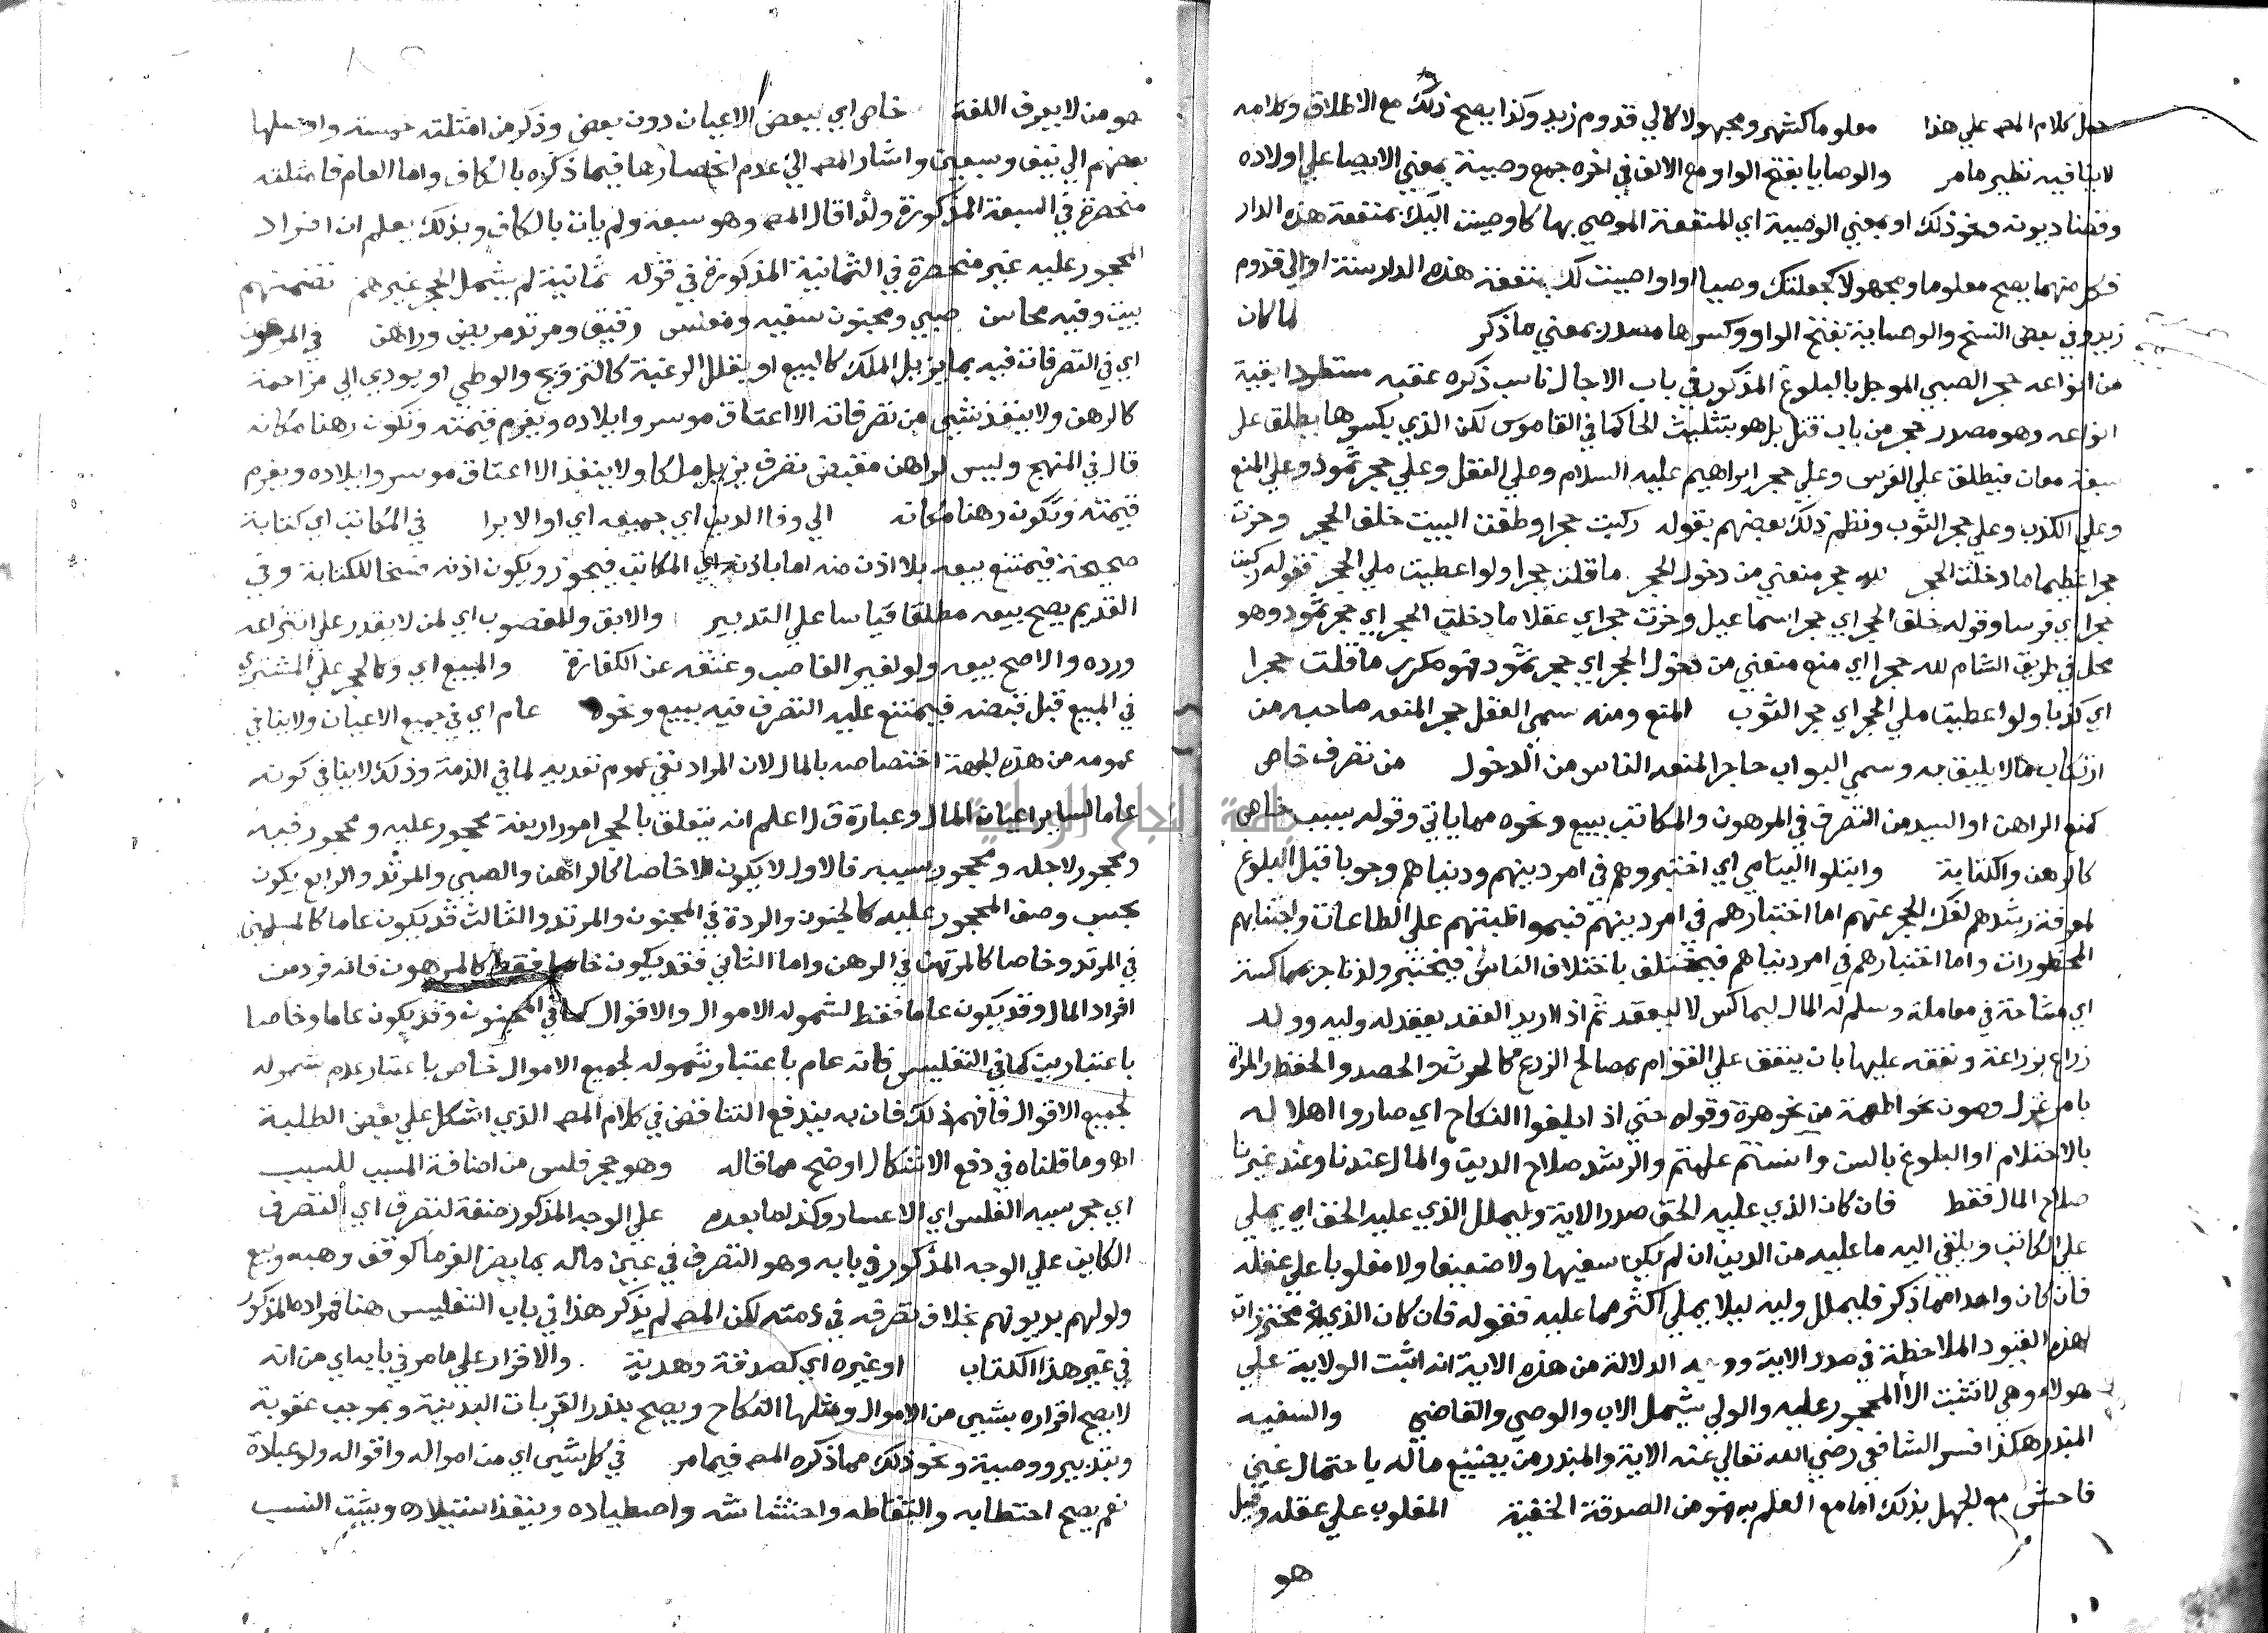 حمل كلام المص علي هذا معلوما كشهر ومجهولا كالي قدوم زيد وكذا يصح ذلك مع الاطلاق وكلامه
لا ينافيه نظير ما مر والوصايا بفتح الواو مع الالف في اخره جمع وصية بمعني الايصا علي اولاده
وقضا ديونه ونحو ذلك او بمعني الوصية اي المنفعة الموصي بها كاوصيت اليك بمنفعة هذه الدار
فكل منهما يصح معلوما ومجهولا كجعلتك وصيا او اوصيت لك بمنفعة هذه الدار سنة او الي قدوم
زيد وفي بعض النسخ والوصاية بفتح الواو وكسرها مصدر بمعني ما ذكر لما كان
من انواعه حجر الصبي الموجل بالبلوغ المذكور في باب الاجال ناسب ذكره عقبه مستطردا بقية
انواعه وهو مصدر حجر من باب قتل بل هو بتثليث الحا كما في القاموس لكن الذي بكسرها يطلق علي
سبعة معان فيطلق علي الفرس وعلي حجر ابراهيم عليه السلام وعلي العقل وعلي حجر ثمود وعلي المنع
وعلي الكذب وعلي حجر الثوب ونظم ذلك بعضهم بقوله ركبت حجرا وطفت البيت خلف الحجر وحزت
حجرا عظيما ما دخلت الحجر لله حجر منعني من دخول الحجر ما قلت حجرا ولو اعطيت ملي الحجر فقوله ركبت
حجرا اي فرسا وقوله خلف الحجر اي حجر اسماعيل وحزت حجرا اي عقلا ما دخلت الحجر اي حجر ثمود وهو
محل في طريق الشام لله حجرا اي منع منعني من دخول الحجر اي حجر ثمود فهو مكرر ما قلت حجرا
اي كذبا ولو اعطيت ملي الحجر اي حجر الثوب المنع ومنه سمي العقل حجر المنعه صاحبه من
ارتكاب ما لا يليق به وسمي البواب حاجرا لمنعه الناس من الدخول من تصرف خاص
كمنع الراهن او السيد من التصرف في المرهون والمكاتب ببيع ونحوه مما ياتي وقوله بسبب خاص
كالرهن والكتابة وابتلوا اليتامي اي اختبروهم في امر دينهم ودنياهم وجوبا قبل البلوغ
لمعرفة رشدهم لفك الحجر عنهم اما اختبارهم في امر دينهم فبمواظبتهم علي الطاعات واجتنابهم
المحظورات واما اختبارهم في امر دنياهم فيختلف باختلاف الناس فيختبر ولد تاجر بمماكسة
اي مشاحة في معاملة وسلم له المال ليماكس لا ليعقد ثم اذا اريد العقد يعقد له وليه وولد
زراع بزراعة ونفقه عليها بان ينفق علي القوام بمصالح الزرع كالحرث والحصد والحفظ والمراة
بامر غزل وصون نحو اطعمة من نحو هرة وقوله حتي اذا بلغوا النكاح اي صاروا اهلا له
بالاحتلام او البلوغ بالسن وانستم علمتم والرشد صلاح الدين والمال عندنا وعند غيرنا
صلاح المال فقط فان كان الذي عليه الحق صدر الاية وليملل الذي عليه الحق اي يملي
علي الكاتب ويلقي اليه ما عليه من الدين ان لم يكن سفيها ولا ضعيفا ولا مغلوبا علي عقله
فان كان واحدا مما ذكر فليملل وليه ليلا يملي اكثر مما عليه فقوله فان كان الذي الخ محترزات
لهذه القيود الملاحظة في صدر الاية ووجه الدلالة من هذه الاية انه اثبت الولاية علي
هولاء وهي لا تثبت الا المحجور عليه والولي يشمل الاب والوصي والقاضي والسفيه
المبذر هكذا فسر الشافعي رضي الله تعالي عنه الاية والمبذر من يضيع ماله باحتمال غبن
فاحش مع الجهل بذلك اما مع العلم به فهو من الصدقة الخفية المغلوب علي عقله وقيل
هو
هو من لا يعرف اللغة خاص اي ببعض الاعيان دون بعض وذكر من امثلته خمسة واوصلها
بعضهم الي نيف وسبعين واشار المص الي عدم انحصارها فيما ذكره بالكاف واما العام فامثلته
منحصرة في السبعة المذكورة ولذا قال المص وهو سبعة ولم يات بالكاف وبذلك يعلم ان افراد
المحجور عليه غير منحصرة في الثمانية المذكورة في قوله ثمانية لم يشمل الحجر غيرهم تضمنهم
بيت وفيه محاسن صبي ومجنون سفيه ومفلس رقيق ومرتد مريض وراهن في المرهون
اي في التصرفات فيه بما يزيل الملك كالبيع او يقلل الرغبة كالتزويج والوطي او يودي الي مزاحمة
كالرهن ولا ينفذ شي من تصرفاته الا اعتاق موسر وايلاده ويغرم قيمته وتكون رهنا مكانه
قال في المنهج وليس لراهن مقبض تصرف يزيل ملكا ولا ينفذ الا اعتاق موسر وايلاده ويغرم
قيمته وتكون رهنا مكانه الي وفا الدين اي جميعه اي او الابرا في المكاتب اي كتابة
صحيحة فيمتنع بيعه بلا اذن منه اما باذنه اي المكاتب فيجوز ويكون اذنه فسخا للكتابة وفي
القديم يصح بيعه مطلقا قياسا علي التدبير والابق والمغصوب اي لمن لا يقدر علي انتزاعه
ورده والاصح بيعه ولو لغير الغاصب وعتقه عن الكفارة والمبيع اي وكالحجر علي المشتري
في المبيع قبل قبضه فيمتنع عليه التصرف فيه ببيع ونحوه عام اي في جميع الاعيان ولا ينافي
عمومه من هذه الجهة اختصاصه بالمال لان المراد نفي عموم تعديه لما في الذمة وذلك لا ينافي كونه
عاما لساير اعيان المال وعبارة ق ل اعلم انه يتعلق بالحجر امور اربعة محجور عليه ومحجور فيه
ومحجور لاجله ومحجور بسببه فالاول لا يكون الا خاصا كالراهن والصبي والمرتد والرابع يكون
بحسب وصف المحجور عليه كالجنون والردة في المجنون والمرتد والثالث قد يكون عاما كالمسلمين
في المرتد وخاصا كالمرتهن في الرهن واما الثاني فقد يكون خاصا فقط كالمرهون فانه فرد من
افراد المال وقد يكون عاما فقط لشموله الاموال والاقوال كما في المجنون وقد يكون عاما وخاصا
باعتبارين كما في التفليس فانه عام باعتبار شموله لجميع الاموال خاص باعتبار عدم شموله
لجميع الاقوال فافهم ذلك فان به يندفع التناقض في كلام المص الذي اشكل علي بعض الطلبة
اه وما قلناه في دفع الاشكال اوضح مما قاله وهو حجر فلس من اضافة المسبب للسبب
اي حجر سببه الفلس اي الاعسار وكذا ما بعده علي الوجه المذكور صفة لتصرف اي التصرف
الكاين علي الوجه المذكور في بابه وهو التصرف في عين ماله بما يضر الغرما كوقف وهبه وبيع
ولو لهم بديونهم بخلاف تصرفه في ذمته لكن المص لم يذكر هذا في باب التفليس هنا فمراده المذكور
في غير هذا الكتاب او غيره اي كصدقة وهدية والاقرار علي ما مر في بابه اي من انه
لا يصح اقراره بشي من الاموال ومثلها النكاح ويصح بنذر القربات البدنية وبموجب عقوبة
وبتدبير ووصية ونحو ذلك مما ذكره المص فيما مر في كل شي اي من امواله واقواله ولو عبادة
نعم يصح احتطابه والتقاطه واحتشاشه واصطياده وينفذ استيلاده ويثبت النسب